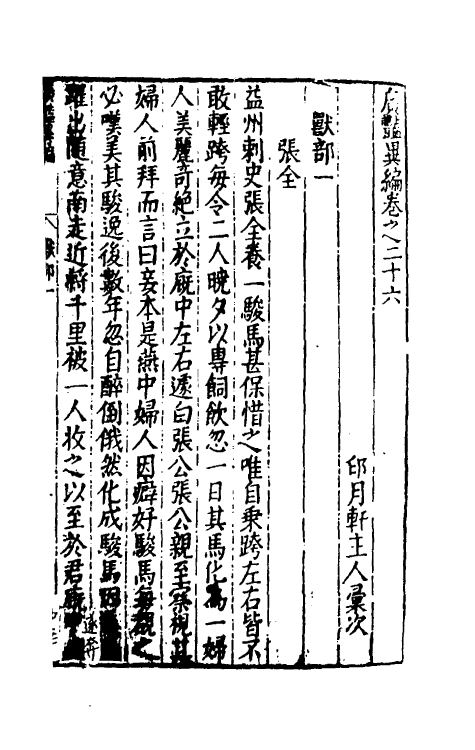 廣艷異編卷之二十六
印月軒主人彙次
獸部一
張全
益州刺史張全養一駿馬甚保惜之唯自乗跨左右皆不
敢輕跨每令二人曉夕以專飼飲忽一日其馬化為一婦
人美麗奇絶立於廐中左右遽白張公張公親至察視其
婦人前拜而言曰妾本是燕中婦人因癖好駿馬每覩之
必嘆美其駿逸後數年忽自醉倒俄然化成駿馬
遂奔
躍出隨意南走近將千里被一人收之以至於君廐
獸部一